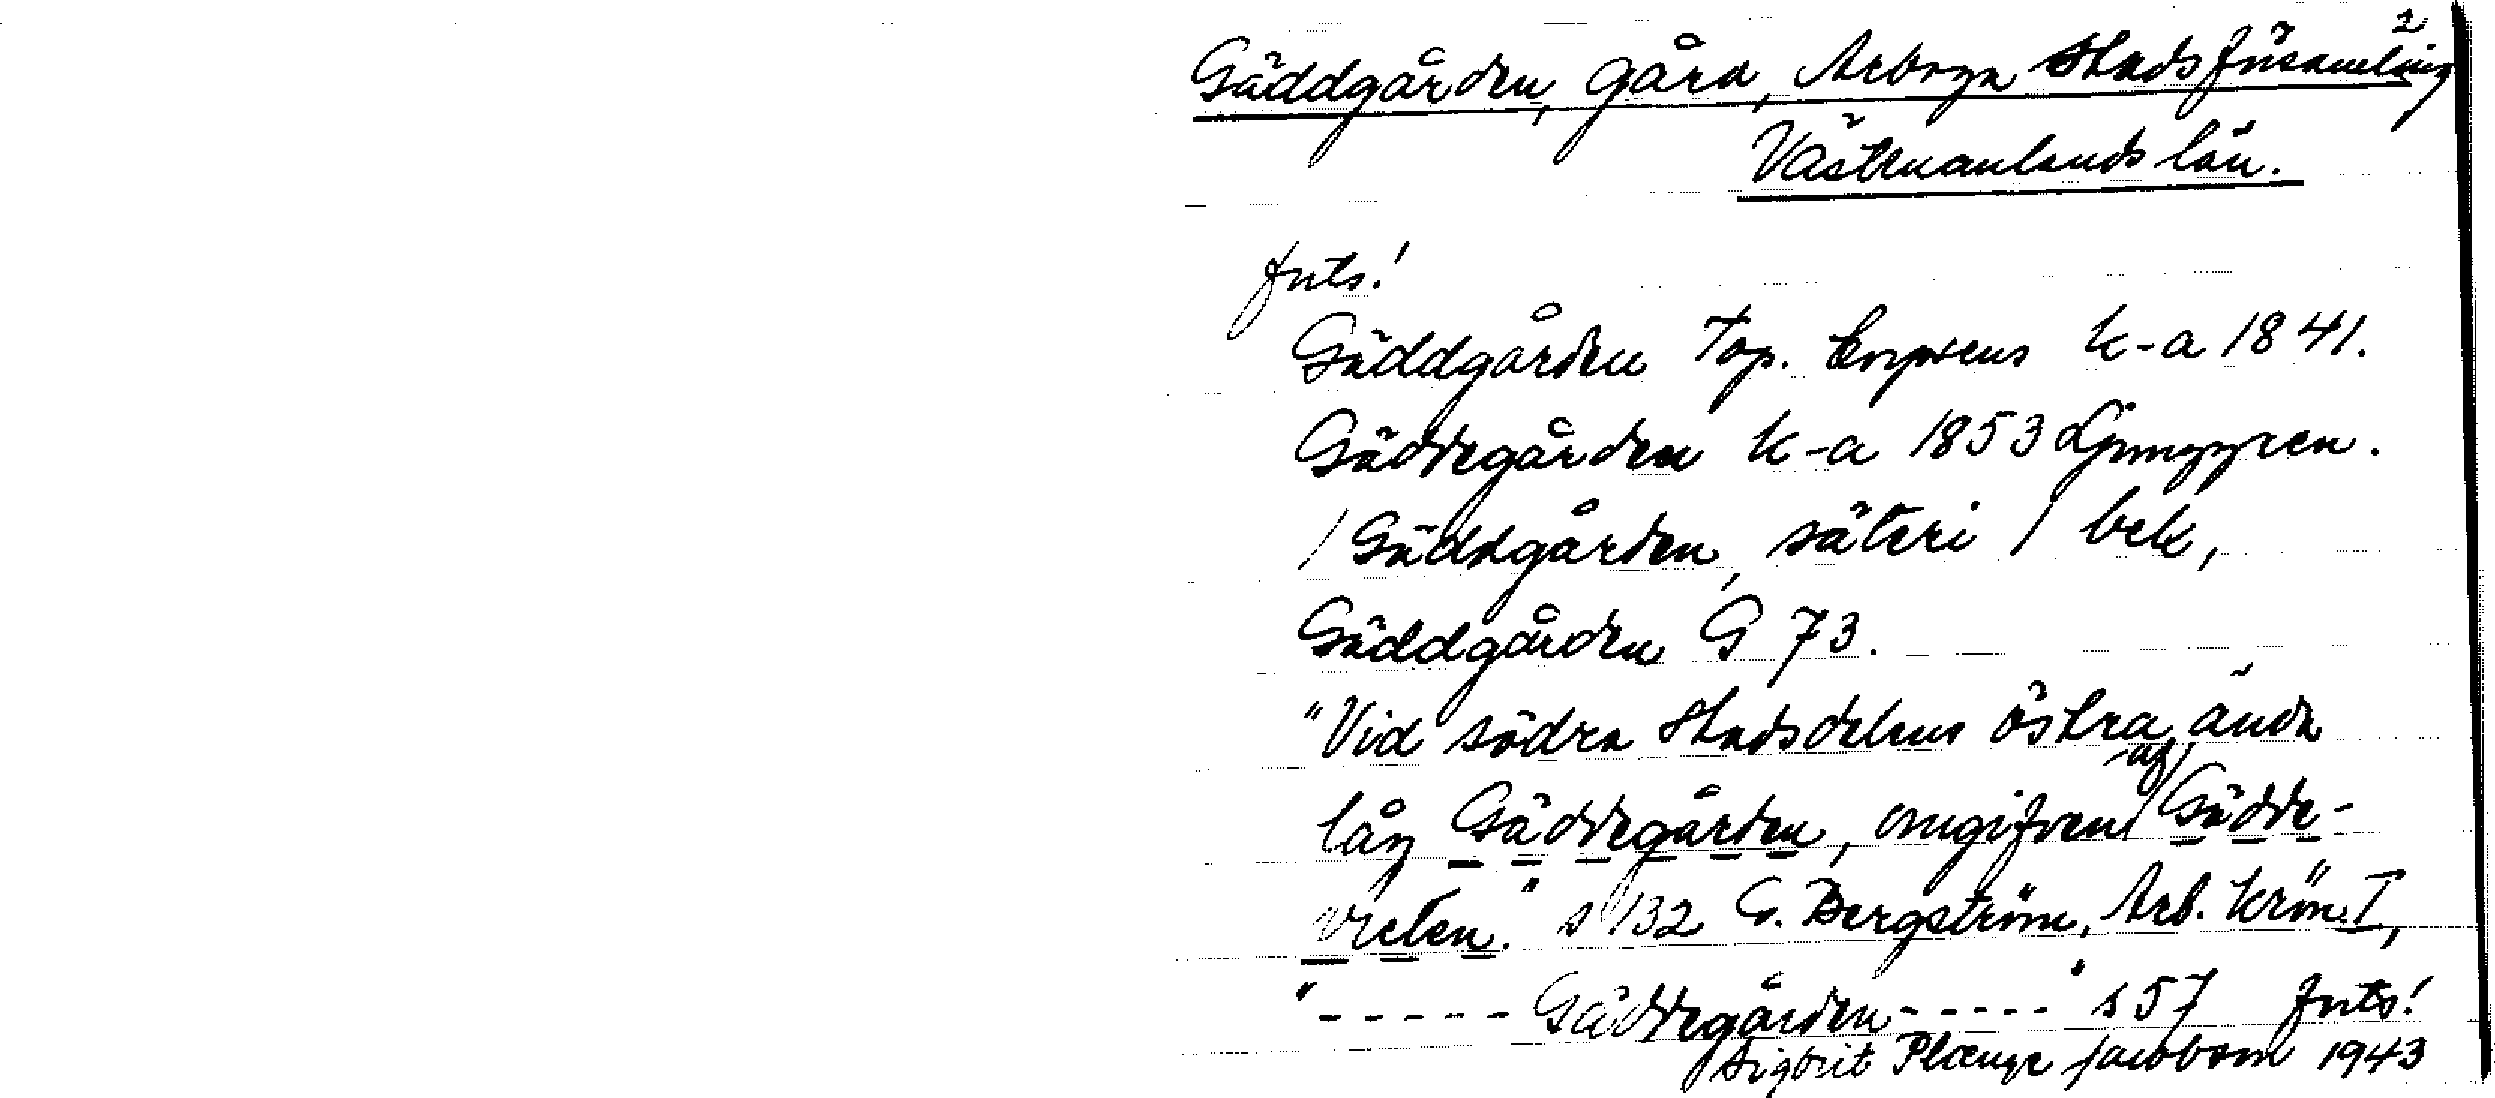 2
Gäddgården, gård, Arboga stadsförsamling
Västmanlands län.
forts!
Gäddgården Top. Corpsens k-a 1841.
Gäddegården k-a 1853 Ljunggren.
/ Gäddgården, säteri / bek,
Gäddgården G 73.
"Vid södra stadsdelens östra ända
låg Gäddegården, omgifven af Gädde-
vreten." s 132 G. Bergström, Arb. krön. I,
"----- Gäddegården -----" s 57 forts!
Sigbrit Plænge Jacobson 1943